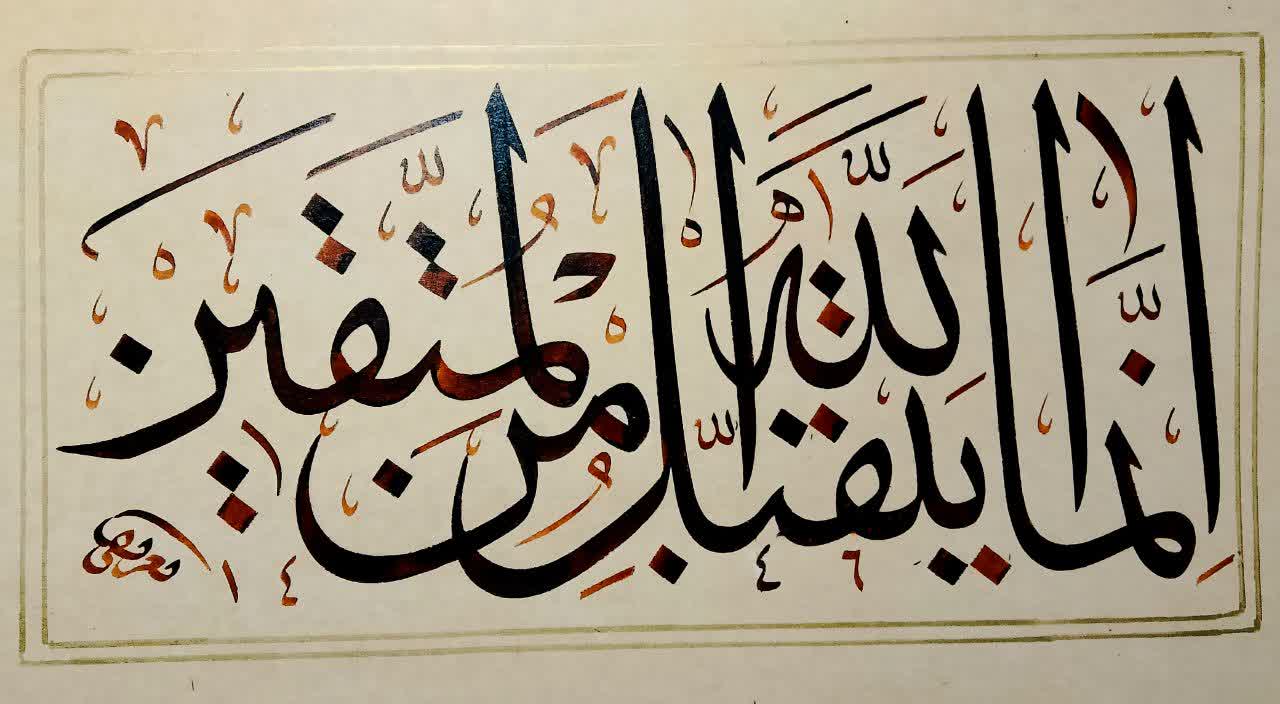 إِنَّمَا يَتَقَبَّلُ اللَّهُ مِنَ الْمُتَّقِينَ
١٤٤٦